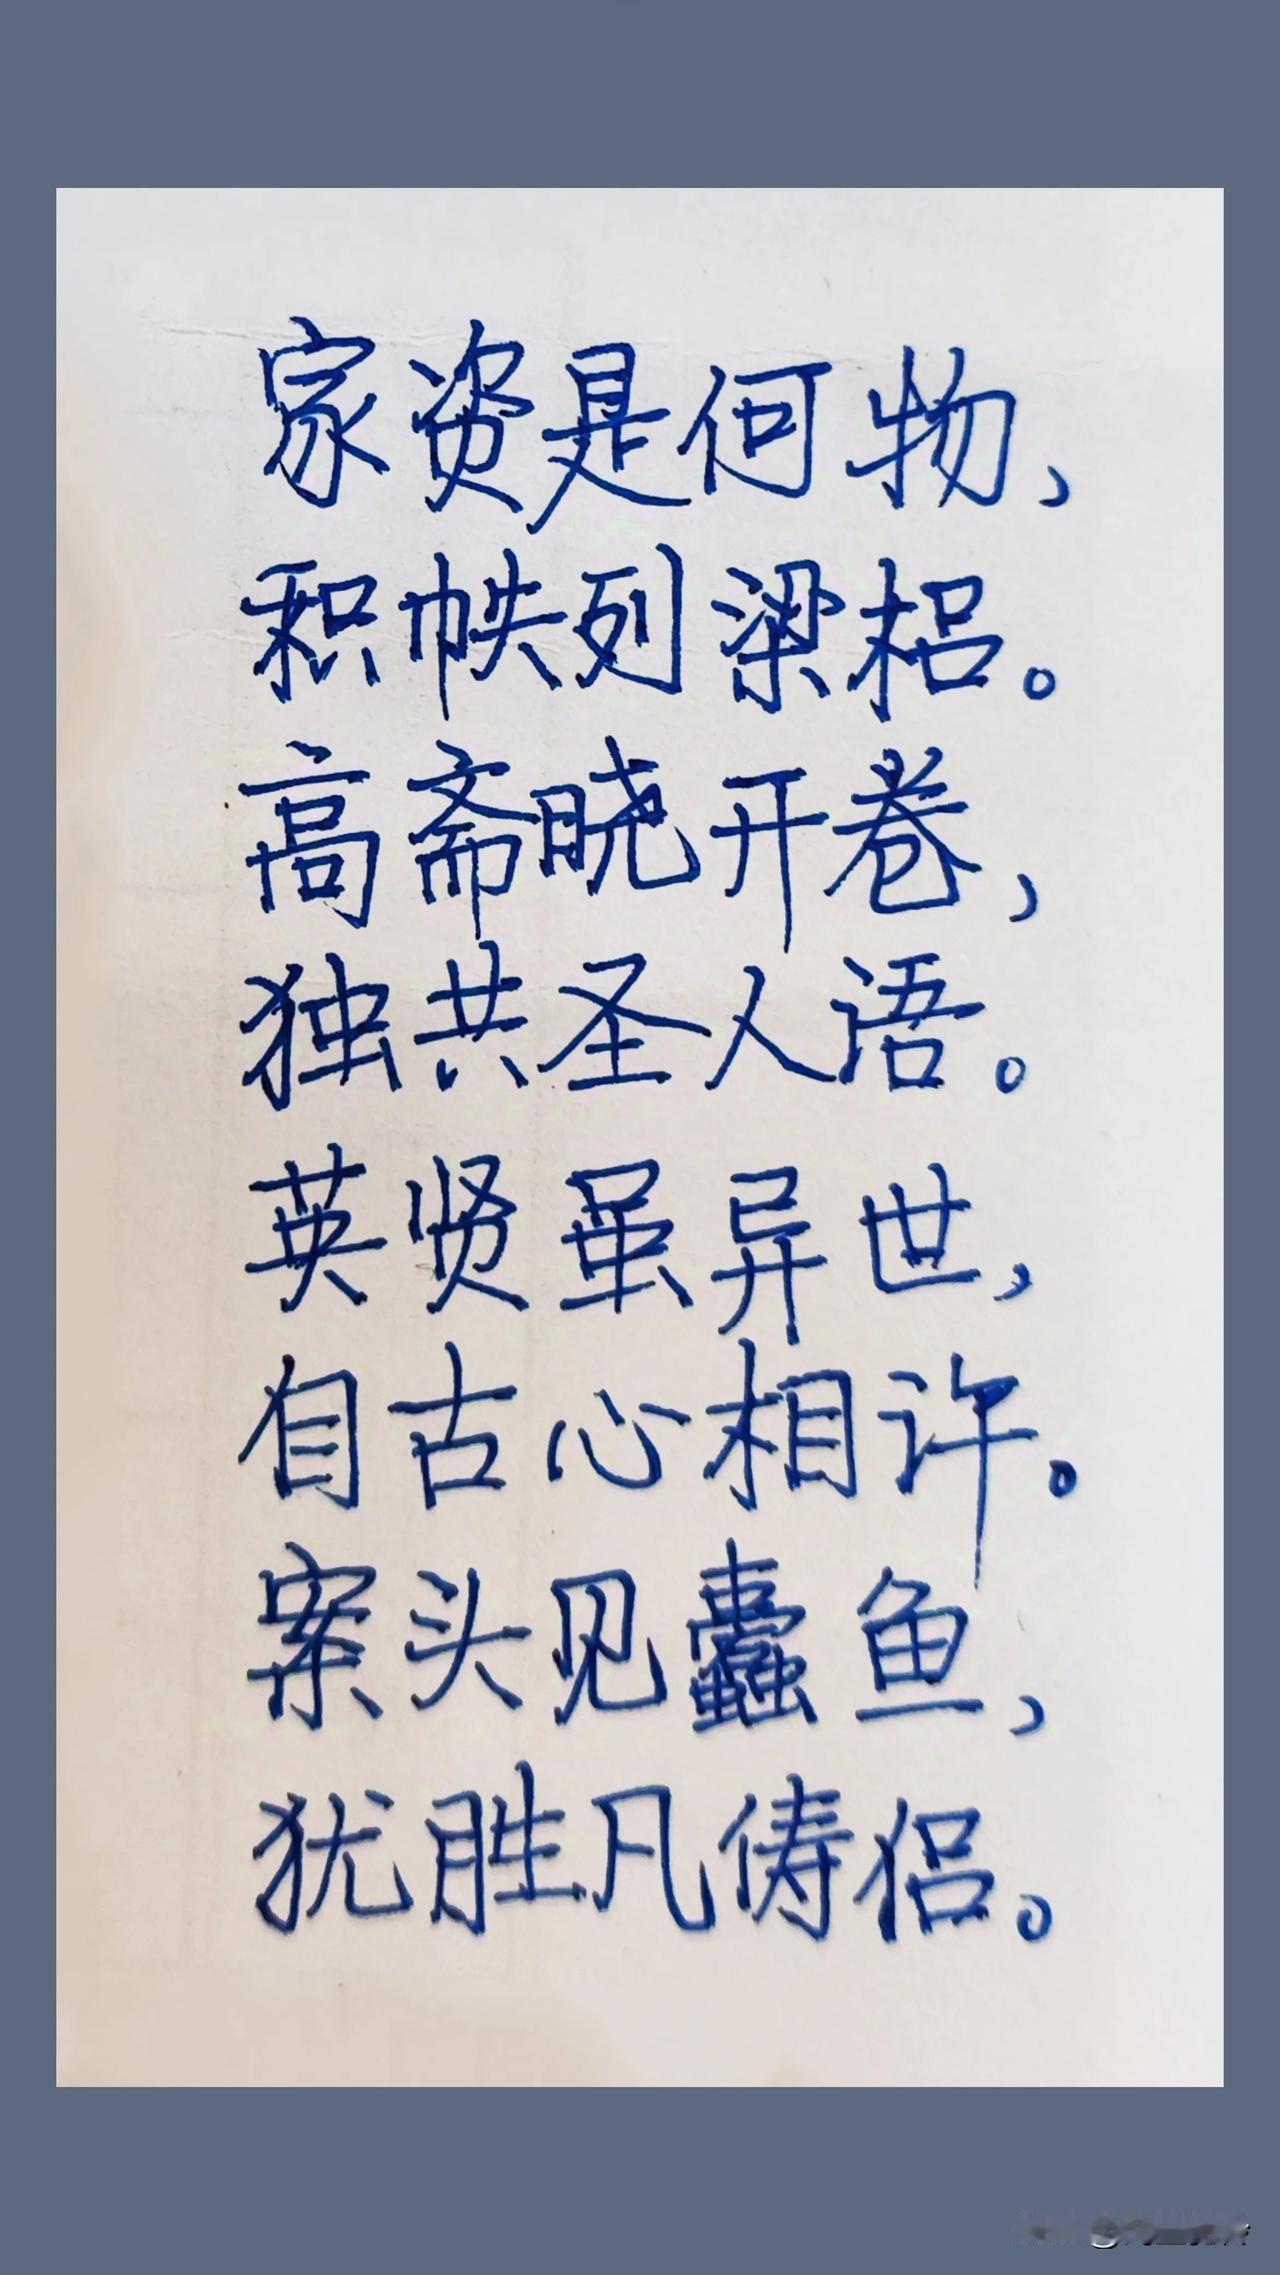 家资是何物，
积帙列梁梠。
高斋晓开卷，
独共圣人语。
英贤虽异世，
自古心相许。
案头见蠹鱼，
犹胜凡俦侣。